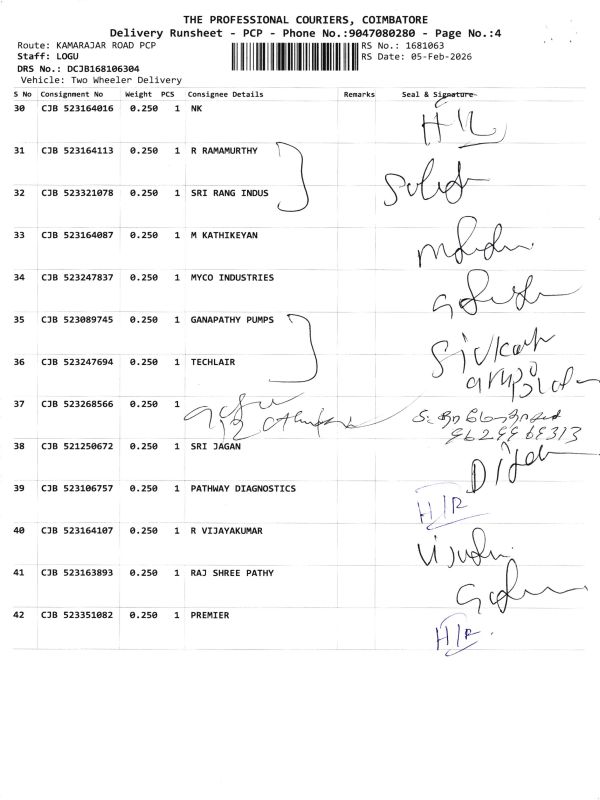 THE PROFESSIONAL COURIERS, COIMBATORE
Delivery Runsheet - PCP - Phone No.:9047080280 - Page No.:4
Route: KAMARAJAR ROAD PCP RS No.: 1681063
Staff: LOGU RS Date: 05-Feb-2026
DRS No.: DCJB168106304
Vehicle: Two Wheeler Delivery
S No Consignment No Weight PCS Consignee Details Remarks Seal & Signature
30 CJB 523164016 0.250 1 NK H/R
31 CJB 523164113 0.250 1 R RAMAMURTHY
32 CJB 523321078 0.250 1 SRI RANG INDUS
33 CJB 523164087 0.250 1 M KATHIKEYAN
34 CJB 523247837 0.250 1 MYCO INDUSTRIES
35 CJB 523089745 0.250 1 GANAPATHY PUMPS
36 CJB 523247694 0.250 1 TECHLAIR
37 CJB 523268566 0.250 1
9629969313
38 CJB 521250672 0.250 1 SRI JAGAN
39 CJB 523106757 0.250 1 PATHWAY DIAGNOSTICS H/R
40 CJB 523164107 0.250 1 R VIJAYAKUMAR
41 CJB 523163893 0.250 1 RAJ SHREE PATHY
42 CJB 523351082 0.250 1 PREMIER H/R.